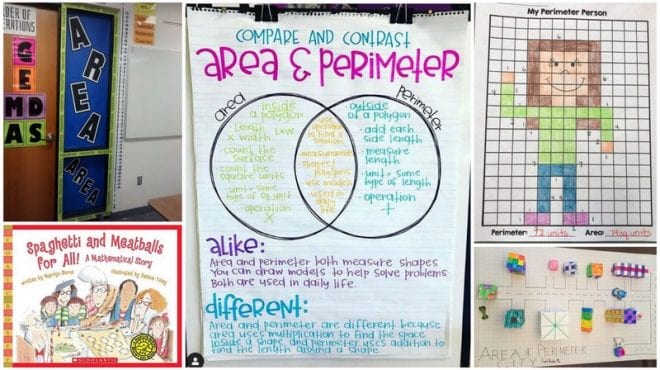 ORDER OF
OPERATIONS
G
E
M D
A S
AREA
AREA
AREA
COMPARE AND CONTRAST
AREA & PERIMETER
area
Perimeter
• inside
of a polygon
Length
x width LxW
• count the
surface
• count the
square units
• unit = some
type of sq unit
• operation
x
• use
operations
to find a
solution
• measurements
• shapes/
polygons
• use models
• used in
daily
life
• outside
of a polygon
• add each
side length
• measure
length
• unit = some
type of length
• operation
+
alike:
Area and perimeter both measure shapes.
You can draw models to help solve problems.
Both are used in daily life.
different:
Area and perimeter are different because
area uses multiplication to find the space
inside a shape, and perimeter uses addition to
find the length around a shape.
My Perimeter Person
Perimeter: 72 units Area:
Spaghetti and Meatballs
for All! A Mathematical Story
written by Marilyn Burns
illustrated by Debbie Tilley
SCHOLASTIC
AREA & PERIMETER
CITY